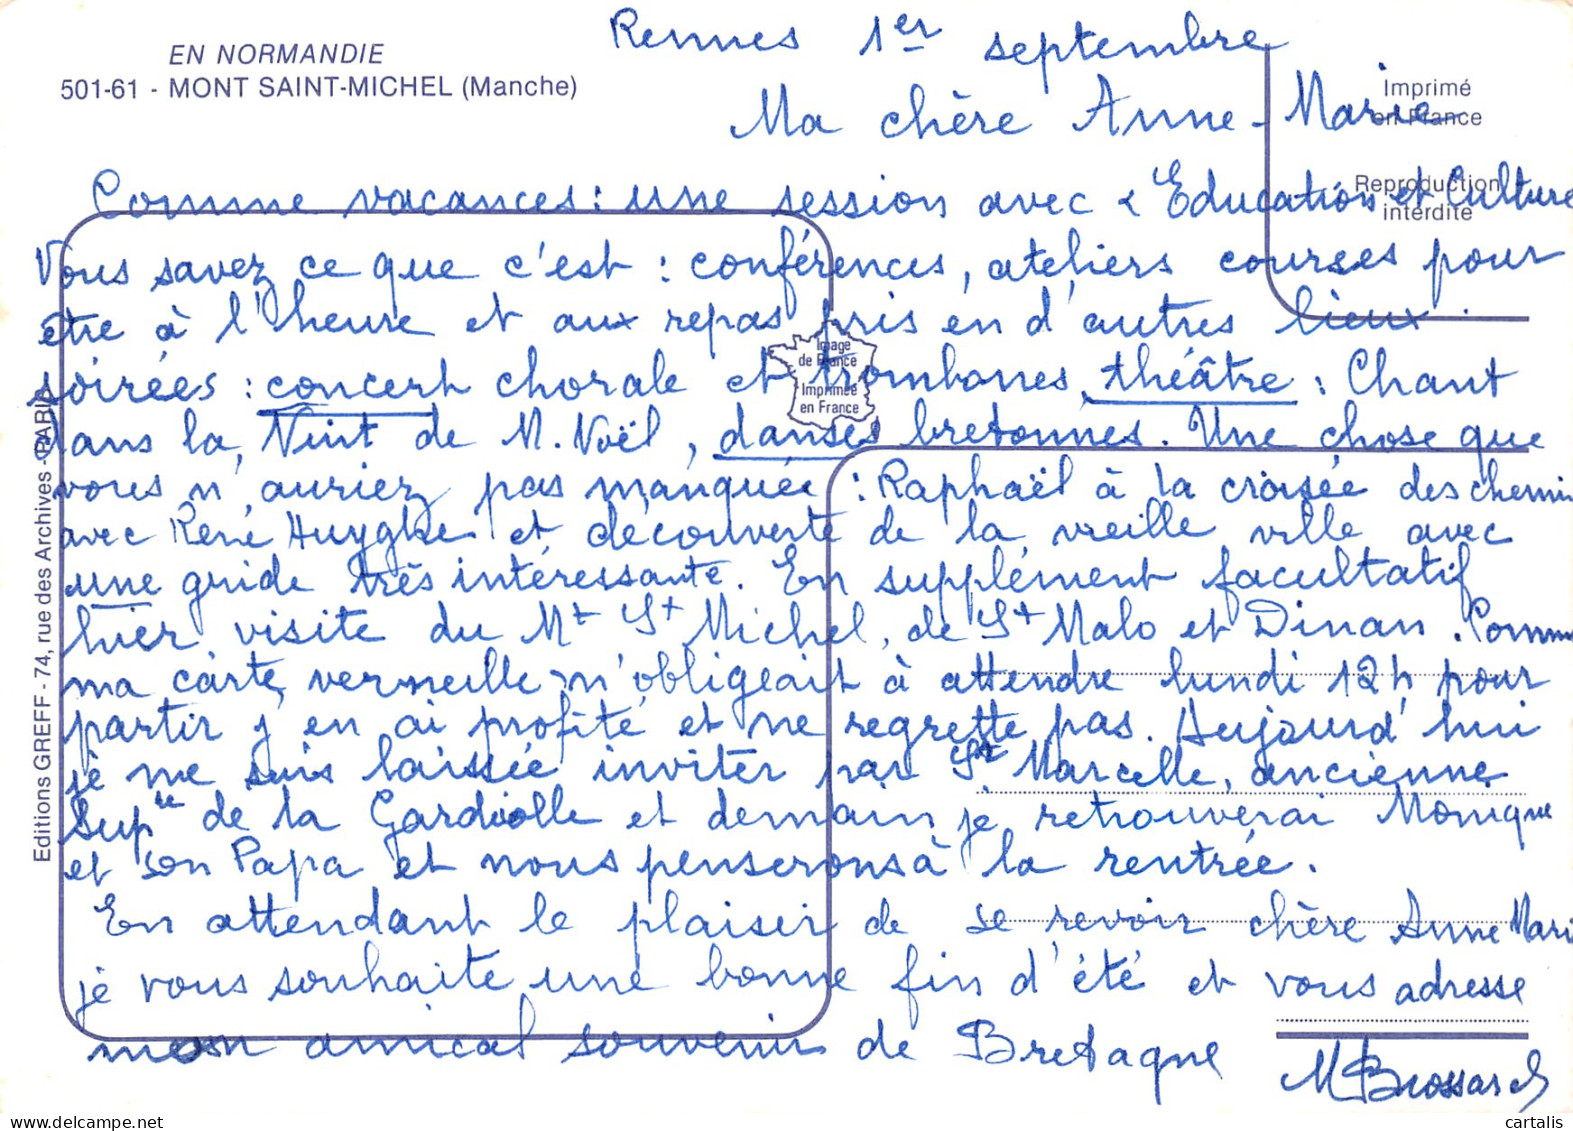 EN NORMANDIE
501-61 - MONT SAINT-MICHEL (Manche)
Imprimé
en France
Reproduction
interdite
Image
de France
Imprimée
en France
Editions GREFF - 74, rue des Archives - PARIS
Rennes 1er septembre
Ma chère Anne-Marie
Comme vacances : une session avec « Education et Culture
Vous savez ce que c'est : conférences, ateliers courses pour
être à l'heure et aux repas pris en d'autres lieux.
soirées : concert chorale et trombones, théâtre : Chant
dans la Nuit de M. Noël, danses bretonnes. Une chose que
vous n'auriez pas manquée : Raphaël à la croisée des chemin
avec René Huyghe et découverte de la vieille ville avec
une guide très intéressante. En supplément facultatif
hier visite du Mt St Michel, de St Malo et Dinan. Comme
ma carte vermeille m'obligeait à attendre lundi 12h pour
partir j'en ai profité et ne regrette pas. Aujourd'hui
je me suis laissée inviter par Sr Marcelle, ancienne
Sup re de la Gardiolle et demain je retrouverai Monique
et son Papa et nous penserons à la rentrée.
En attendant le plaisir de se revoir chère Anne Mari
je vous souhaite une bonne fin d'été et vous adresse
mon amical souvenir de Bretagne
M Brossard
cartalis